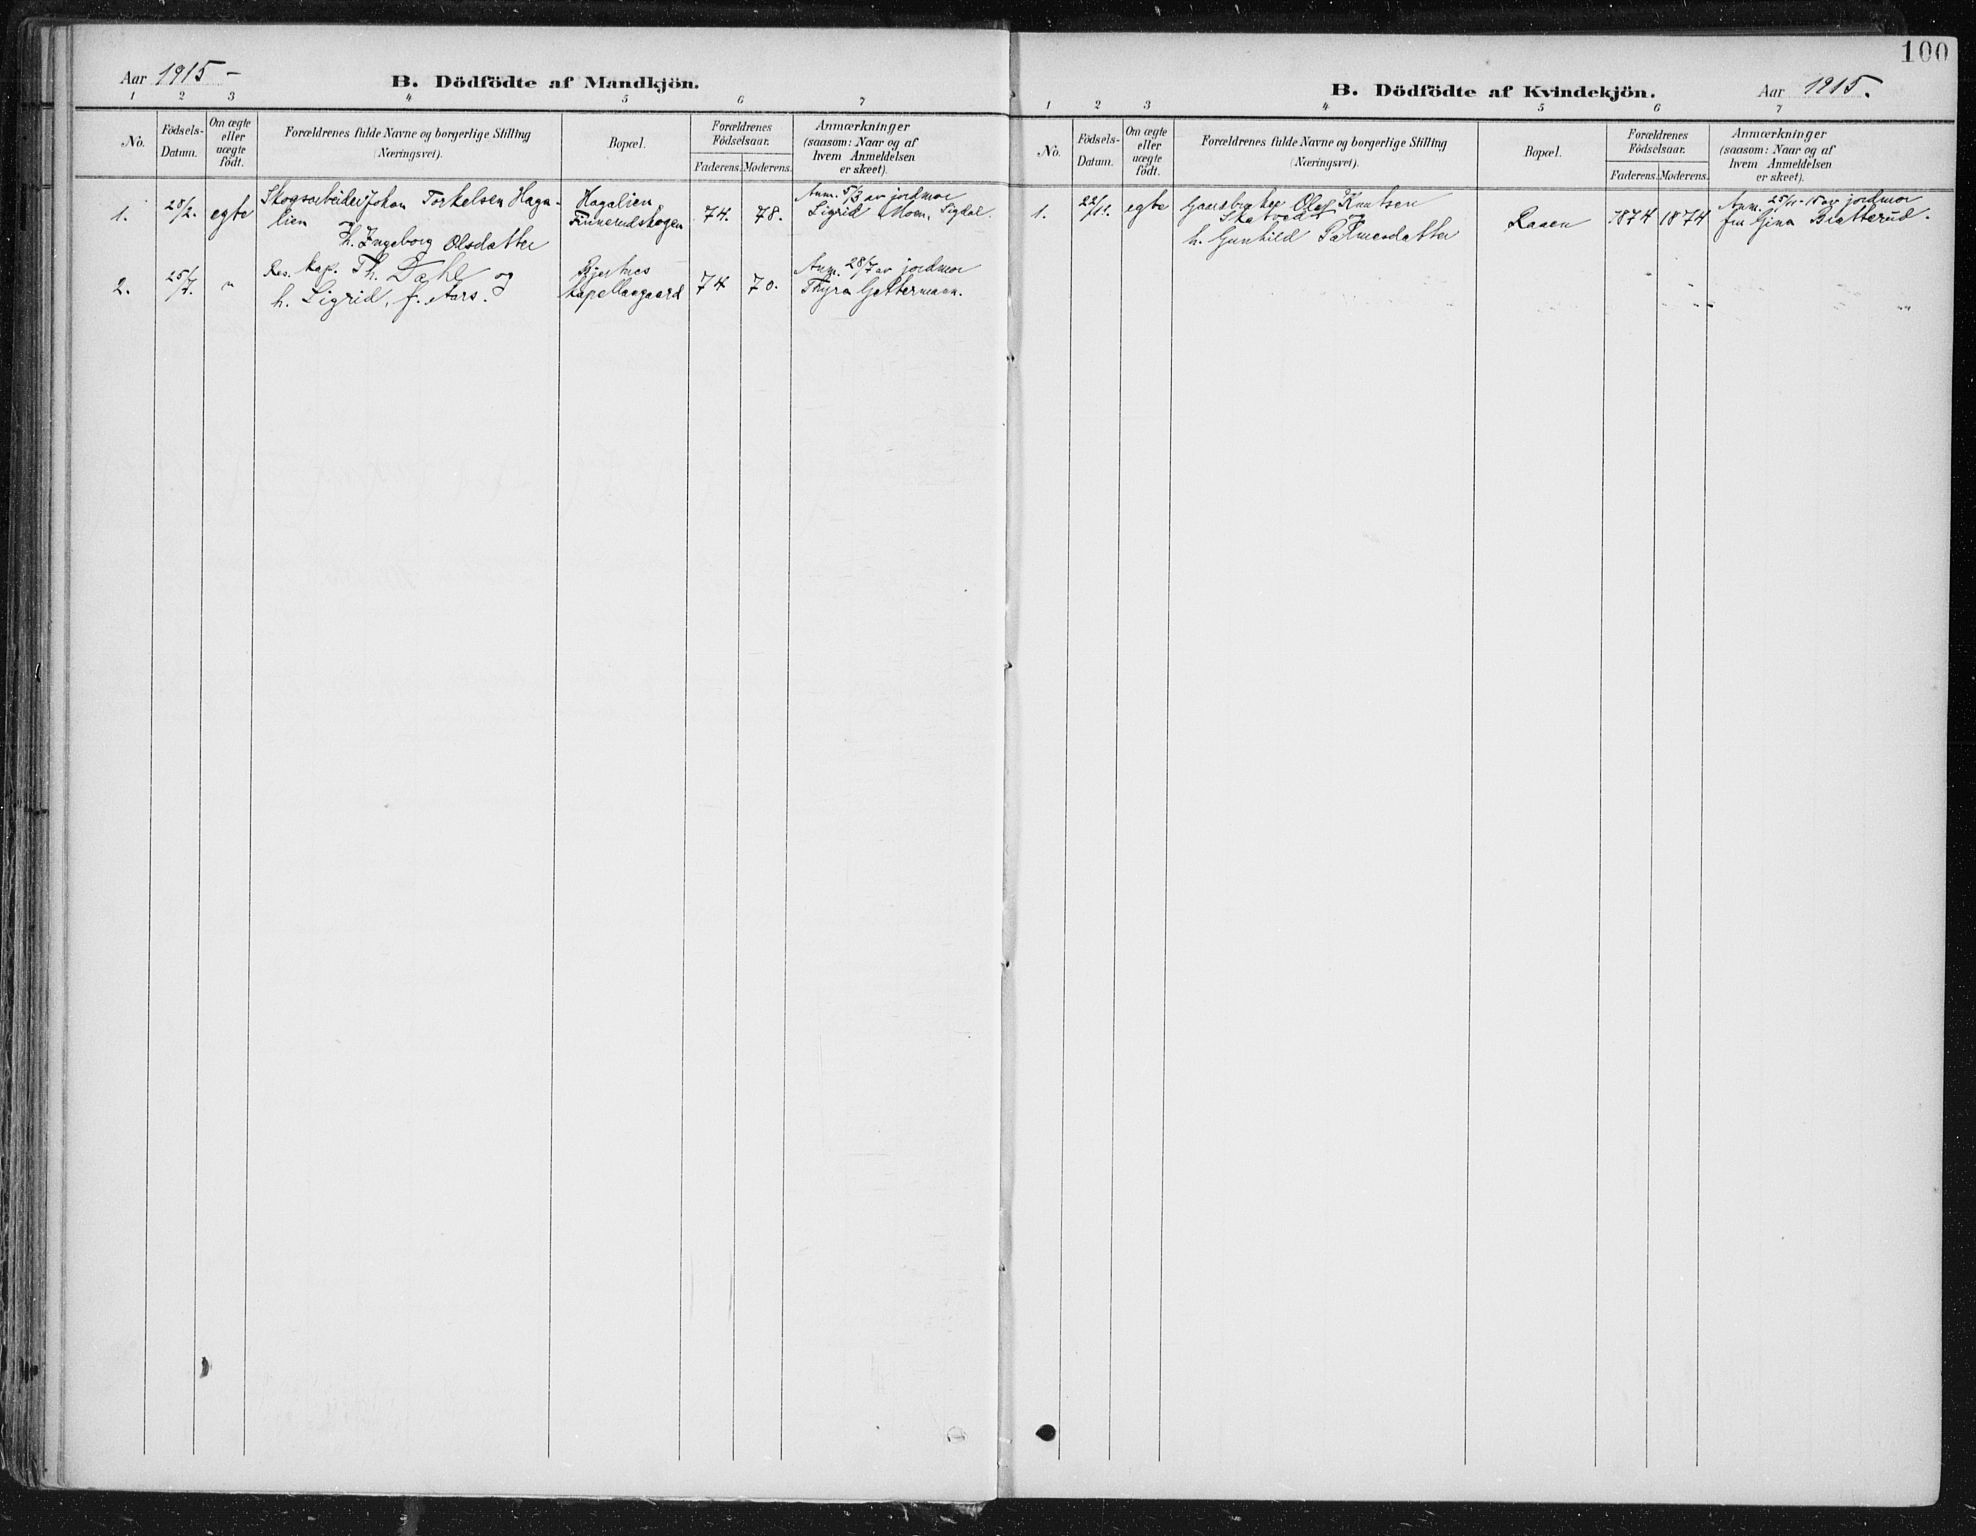 Aar 1915 –
B. Dödfödte af Mandkjön.
1 2 3 4 5 6 7
No.
Födsels-
Datum.
Om ægte
eller
uægte
födt.
Forældrenes fulde Navne og borgerlige Stilling
(Næringsvei).
Bopæl.
Forældrenes
Födselsaar.
Faderens. Moderens.
Anmærkninger
(saasom: Naar og af
hvem Anmeldelsen
er skeet).
1. 28/2. egte
Skogsarbeider Johan Torkelsen Haga-
lien
h. Ingeborg Olsdatter
Hagalien,
Finnerudskogen
74. 78.
Anm. 5/3 av jordmor
Sigrid Moen, Sigdal.
2. 25/7. "
Res. kap. Th. Dahl og
h. Sigrid, f. Aars.
Bjertnes
kapellangaard
74 70.
Anm. 28/7 av jordmor
Thyra Gettermann.
100
B. Dödfödte af Kvindekjön.
Aar 1915.
1 2 3 4 5 6 7
No.
Födsels-
Datum.
Om ægte
eller
uægte
födt.
Forældrenes fulde Navne og borgerlige Stilling
(Næringsvei).
Bopæl.
Forældrenes
Födselsaar.
Faderens. Moderens.
Anmærkninger
(saasom: Naar og af
hvem Anmeldelsen
er skeet).
1. 22/11. egte
Gaardbruker Olaf Knutsen
Skatvedt og
h. Gunhild Palmesdatter
Raaen
1874 1874
Anm. 25/11-15 av jordmor
fru Gina Bratterud.